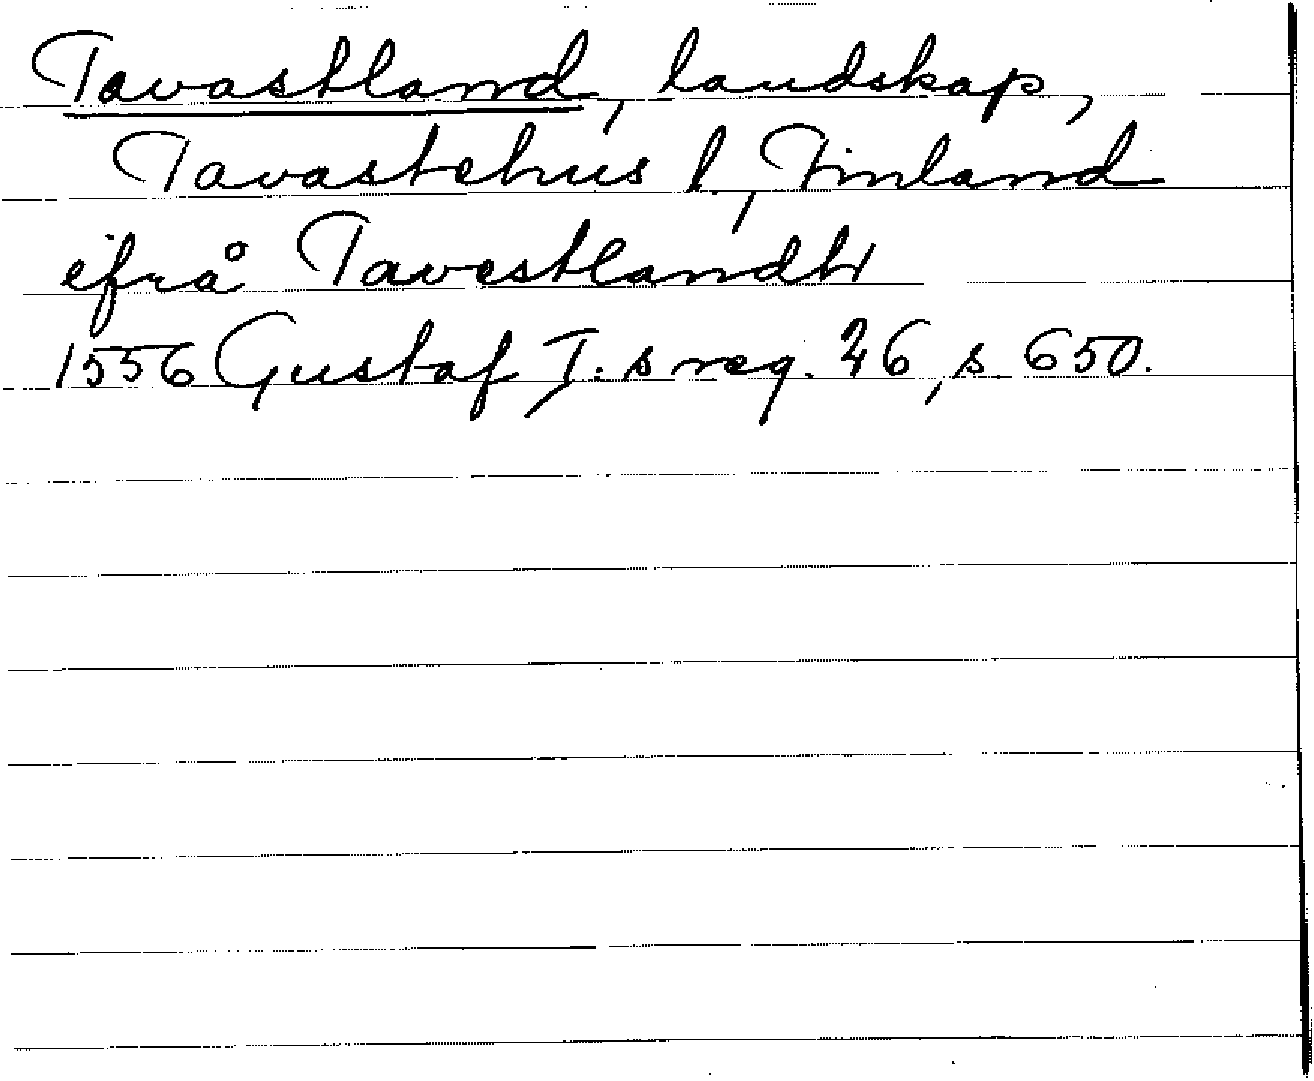 Tavastland, landskap,
Tavastehus l., Finland
ifrå Tavestlandh
1556 Gustaf I:s reg. 26, s 650.